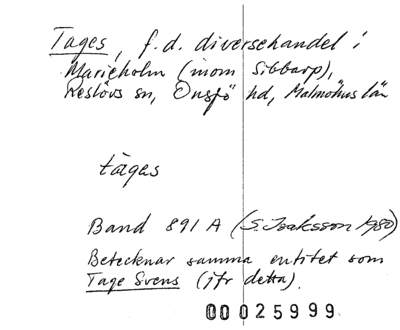 Tages, f.d. diversehandel i
Marieholm (inom Sibbarp),
Reslövs sn, Onsjö hd, Malmöhus län
tāges
Band 891 A (S. Isaksson 1980)
Betecknar samma entitet som
Tage Svens (jfr detta).
00025999